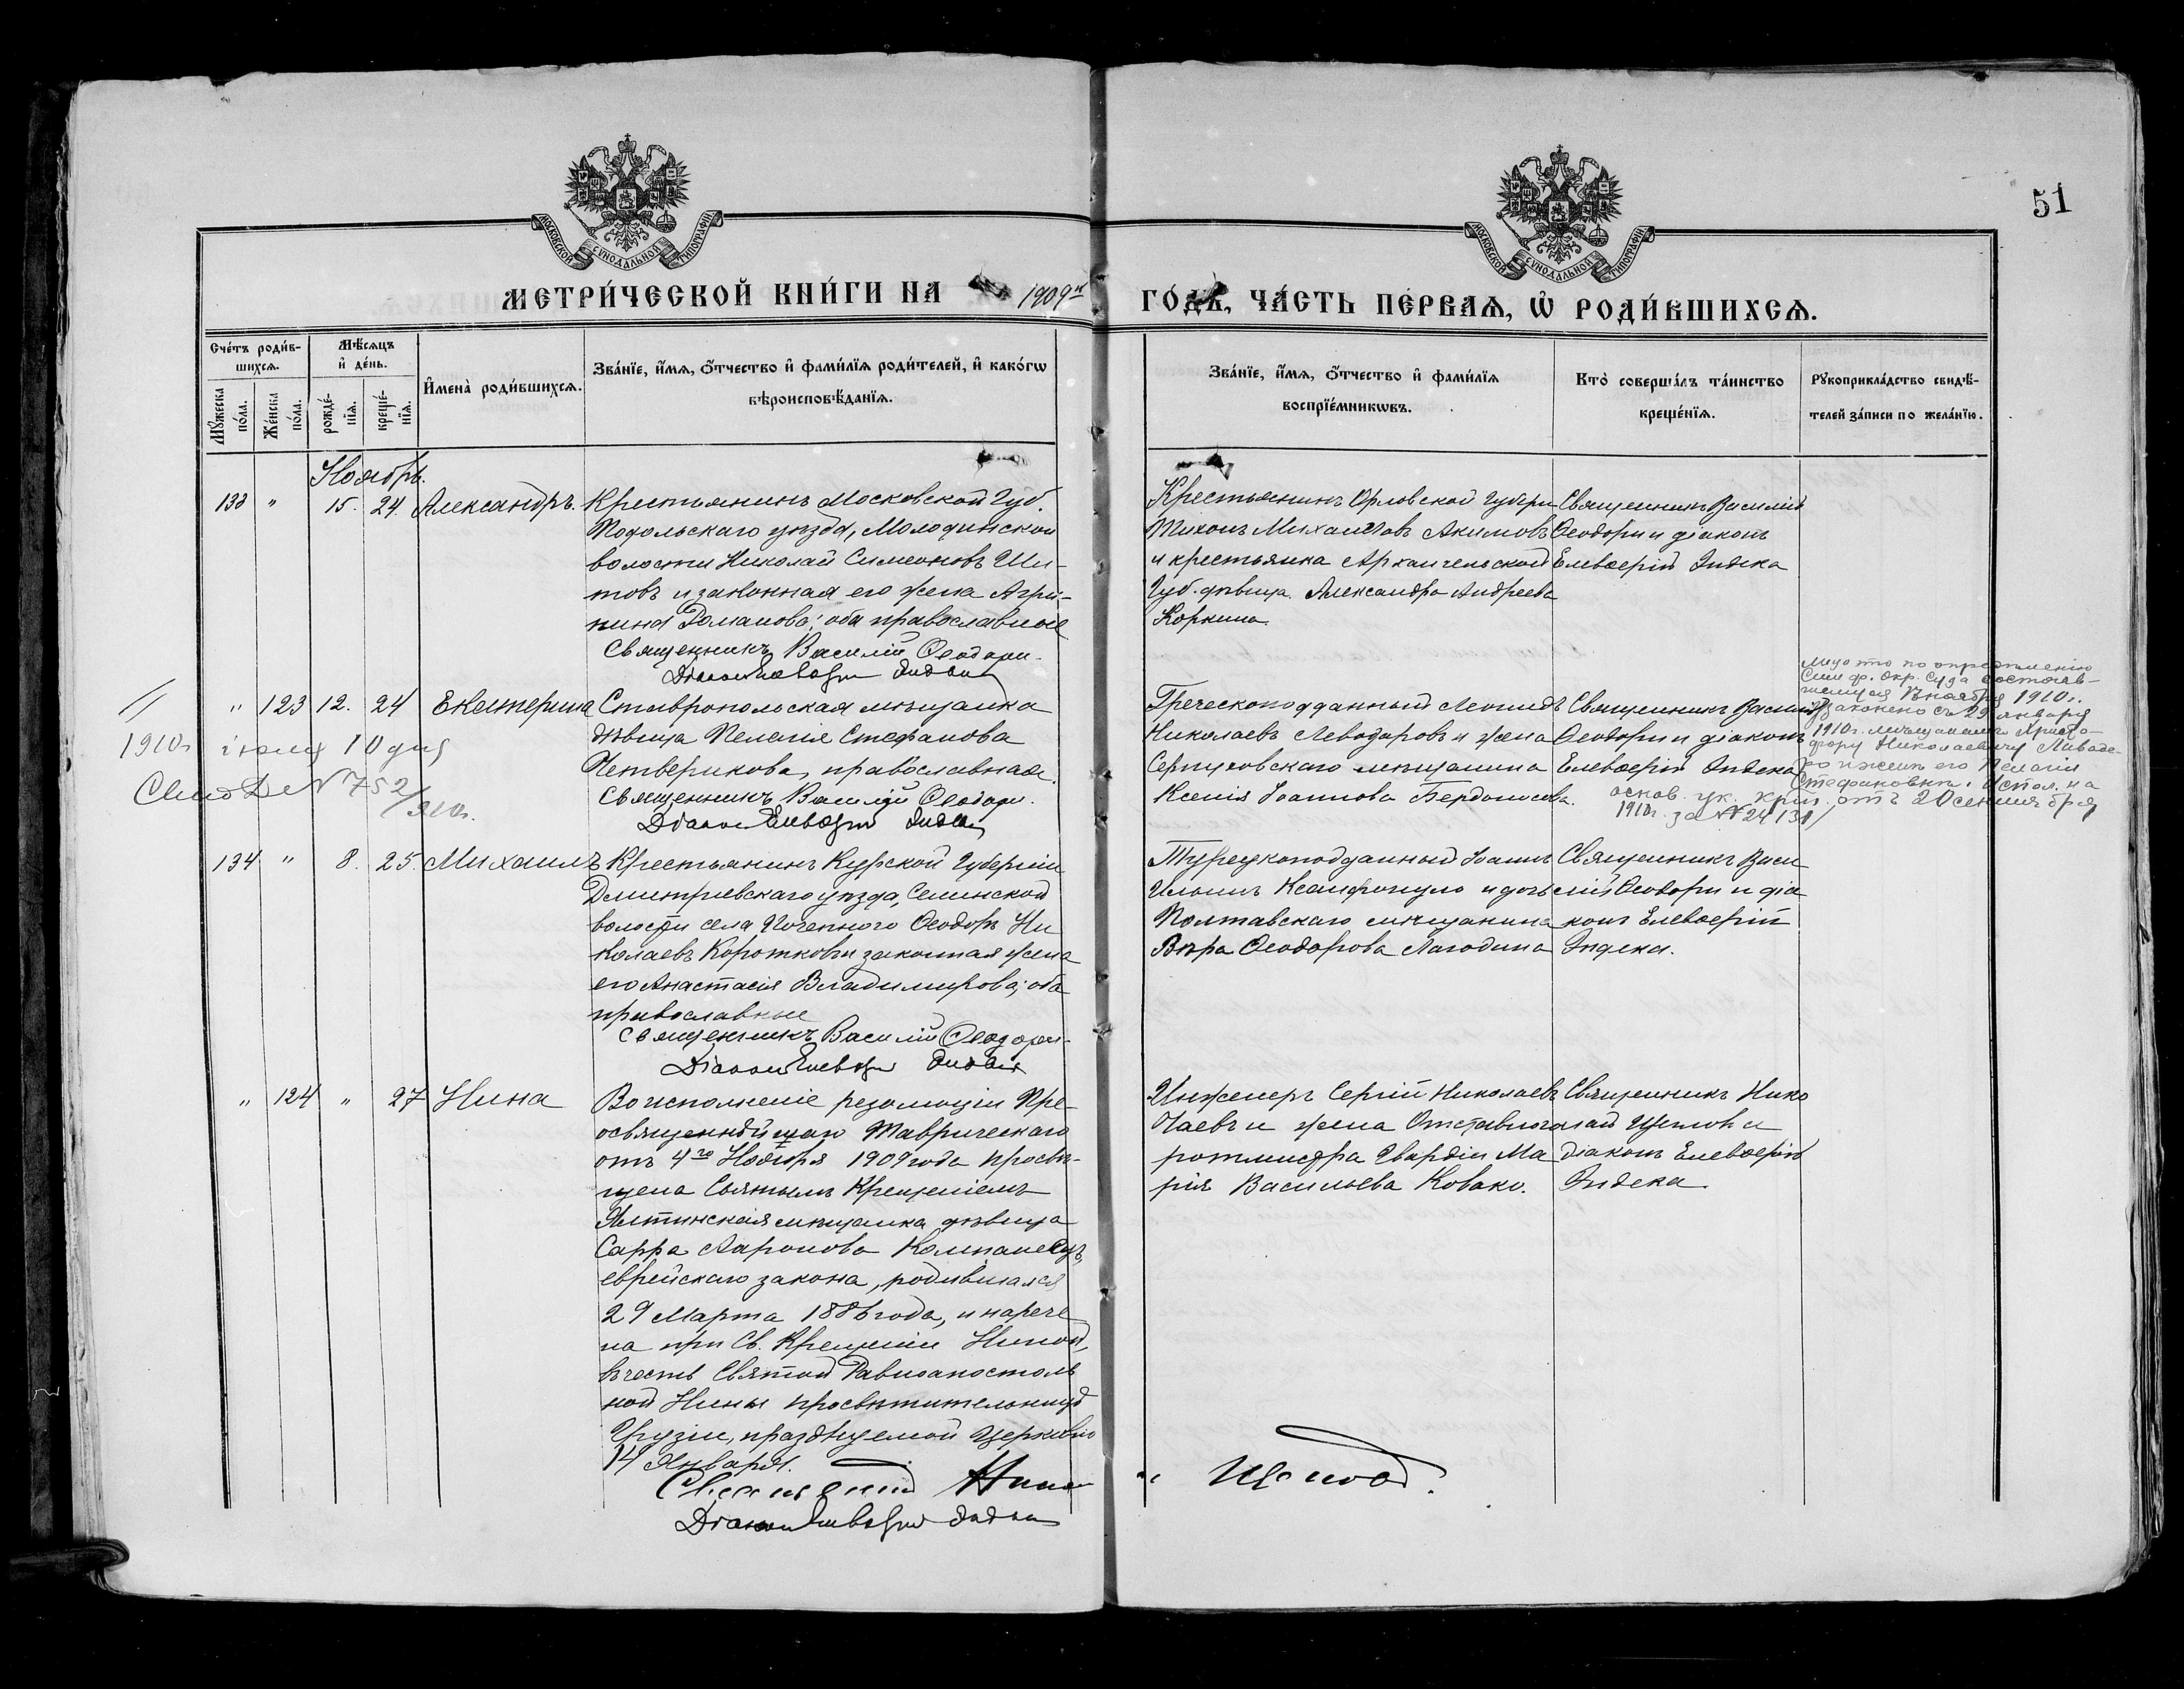 51
МОСКОВСКОЙ СѴНОДАЛЬНОЙ ТИПОГРАФІИ
МОСКОВСКОЙ СѴНОДАЛЬНОЙ ТИПОГРАФІИ
МЕТРИ́ЧЕСКОЙ КНИ́ГИ НА 1909й ГО́ДЪ, ЧА́СТЬ ПЕ́РВАѦ, Ѽ РОДИ́ВШИХСѦ.
Сче́тъ роди́в-
шихсѧ.
Мꙋ́жеска
по́ла.
Же́нска
по́ла.
Мѣ́сѧцъ
и҆ де́нь.
рожде́-
нїѧ.
креще́-
нїѧ.
И҆мена̀ роди́вшихсѧ.
Зва́нїе, и҆́мѧ, ѻ҆́тчество и҆ фами́лїѧ роди́телей, и҆ како́гѡ
вѣроисповѣ́данїѧ.
Зва́нїе, и҆́мѧ, ѻ҆́тчество и҆ фами́лїѧ
воспрїе́мникѡвъ.
Кто̀ соверша́лъ та́инство
креще́нїѧ.
Рꙋкоприкла́дство свидѣ́-
телей за́писи по жела́нїю.
Ноябрь.
133 " 15. 24. Александръ.
Крестьянинъ Московской Губ.
Подольскаго уѣзда, Молодинской
волости Николай Симеоновъ Ши-
товъ и законная его жена Агрип-
пина Романова; оба православные
Священникъ Василій Ѳеодори.
Діаконъ Елевѳерій Индека
Крестьянинъ Орловской губерн
Тихонъ Михайловъ Акимовъ
и крестьянка Архангельской
Губ. дѣвица Александра Андреева
Коркина.
Священникъ Василій
Ѳеодори и діаконъ
Елевѳерій Индека
" 123 12. 24 Екатерина
1910г. іюля 10 дня
Свид. № 752
/910г.
Ставропольская мѣщанка
дѣвица Пелагія Стефанова
Четверикова, православная.
Священникъ Василій Ѳеодори.
Діаконъ Елевѳерій Индека
Греческоподданный Леонидъ
Николаевъ Леводаровъ и жена
Серпуховскаго мѣщанина
Ксенія Іоаннова Бердоносова.
Священникъ Василій
Ѳеодори и діаконъ
Елевѳерій Индека
Лицо это по опредѣленію
Симф. Окр. Суда состояв-
шемуся ноября 1910г.
узаконено съ 29 января
1910г. мѣщанину Христо-
фору Николаевичу Ливаде-
ро и женѣ его Пелагіи
Стефановнѣ. Испол. на
основ. ук. Крым. отъ 20 сентября
1910г. за № 24131
134 " 8. 25. Михаилъ
Крестьянинъ Курской Губерніи
Дмитріевскаго уѣзда, Селинской
волости села Поченного Ѳеодоръ Ни
колаевъ Коротковъ и законная жена
его Анастасія Владимирова; оба
православные
Священникъ Василій Ѳеодори
Діаконъ Елевѳерій Индека
Турецкоподданный Іоаннъ
Ильинъ Ксанфопуло и дочь
Полтавскаго мѣщанина
Вѣра Ѳеодорова Лагодина
Священникъ Васи
лій Ѳеодори и діа
конъ Елевѳерій
Индека.
" 124 " 27 Нина
Во исполненіе резолюціи Пре-
освященнѣйшаго Таврическаго
отъ 4го Ноября 1909 года просвѣ-
щена Святымъ Крещеніемъ
Ялтинская мѣщанка дѣвица
Сарра Ааронова Компанеецъ,
еврейскаго закона, родившаяся
29 Марта 1886 года, и нарече
на при Св. Крещеніи Ниной,
въ честь Святой Равноапостоль
ной Нины просвѣтительницы
Грузіи, празднуемой Церковію
14 Января.
Священникъ Нико
Діаконъ Елевѳерій Индека
Инженеръ Сергій Николаевъ
Чаевъ и жена Отставного
ротмистра Гвардіи Ма
рія Васильева Ковако.
Священникъ Нико
лай Щепловъ и
діаконъ Елевѳерій
Индека